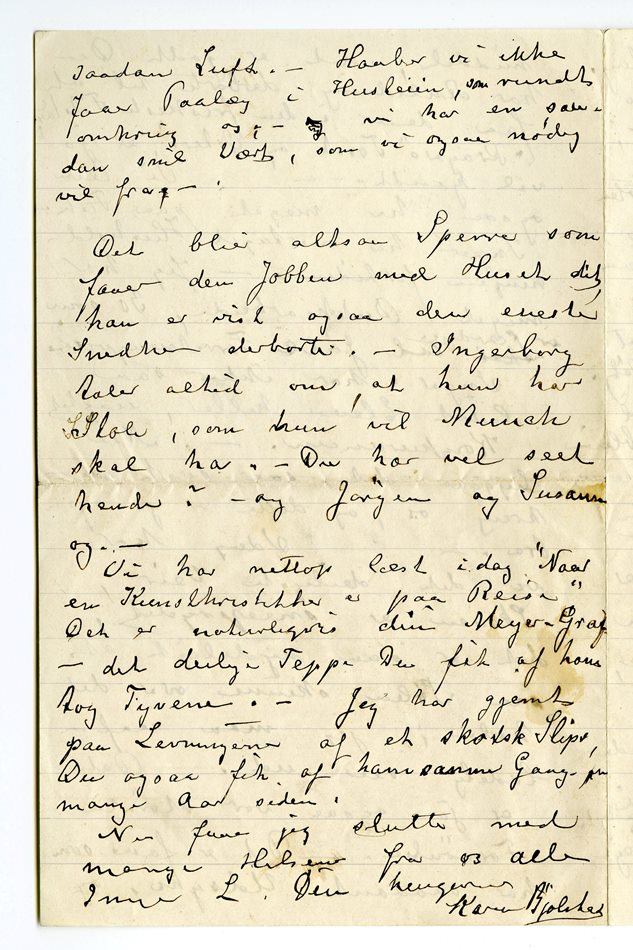 saadan Luft. – Haaber vi ikke
faaer Paalæg i Husleien, som rundt
omkring os, – vi har en saa-
dan snil Vært, som vi ogsaa nødig
vil fra, – .
Det blir altsaa Sperre som
faaer den Jobben med Huset dit,
han er vist ogsaa den eneste
Snedker derborte. – Ingerborg
taler altid om, at hun har
Stole, som hun vil Munch
skal ha. – Du har vel seet
hende? – og Jörgen og Susanne
og. –
Vi har nettop læst idag "Naar
en Kunstkritikker er paa Reise"
Det er naturligvis din Meyer-Gräf
– det deilige Teppe Du fik af ham
tog Tyvene. – Jeg har gjemt
paa Levningerne af et skotsk Slips,
Du ogsaa fik af ham samme Gang for
mange Aar siden.
Nu faaer jeg slutte med
mange Hilsener fra os alle
Inger L. Din hengivne
Karen Bjölstad